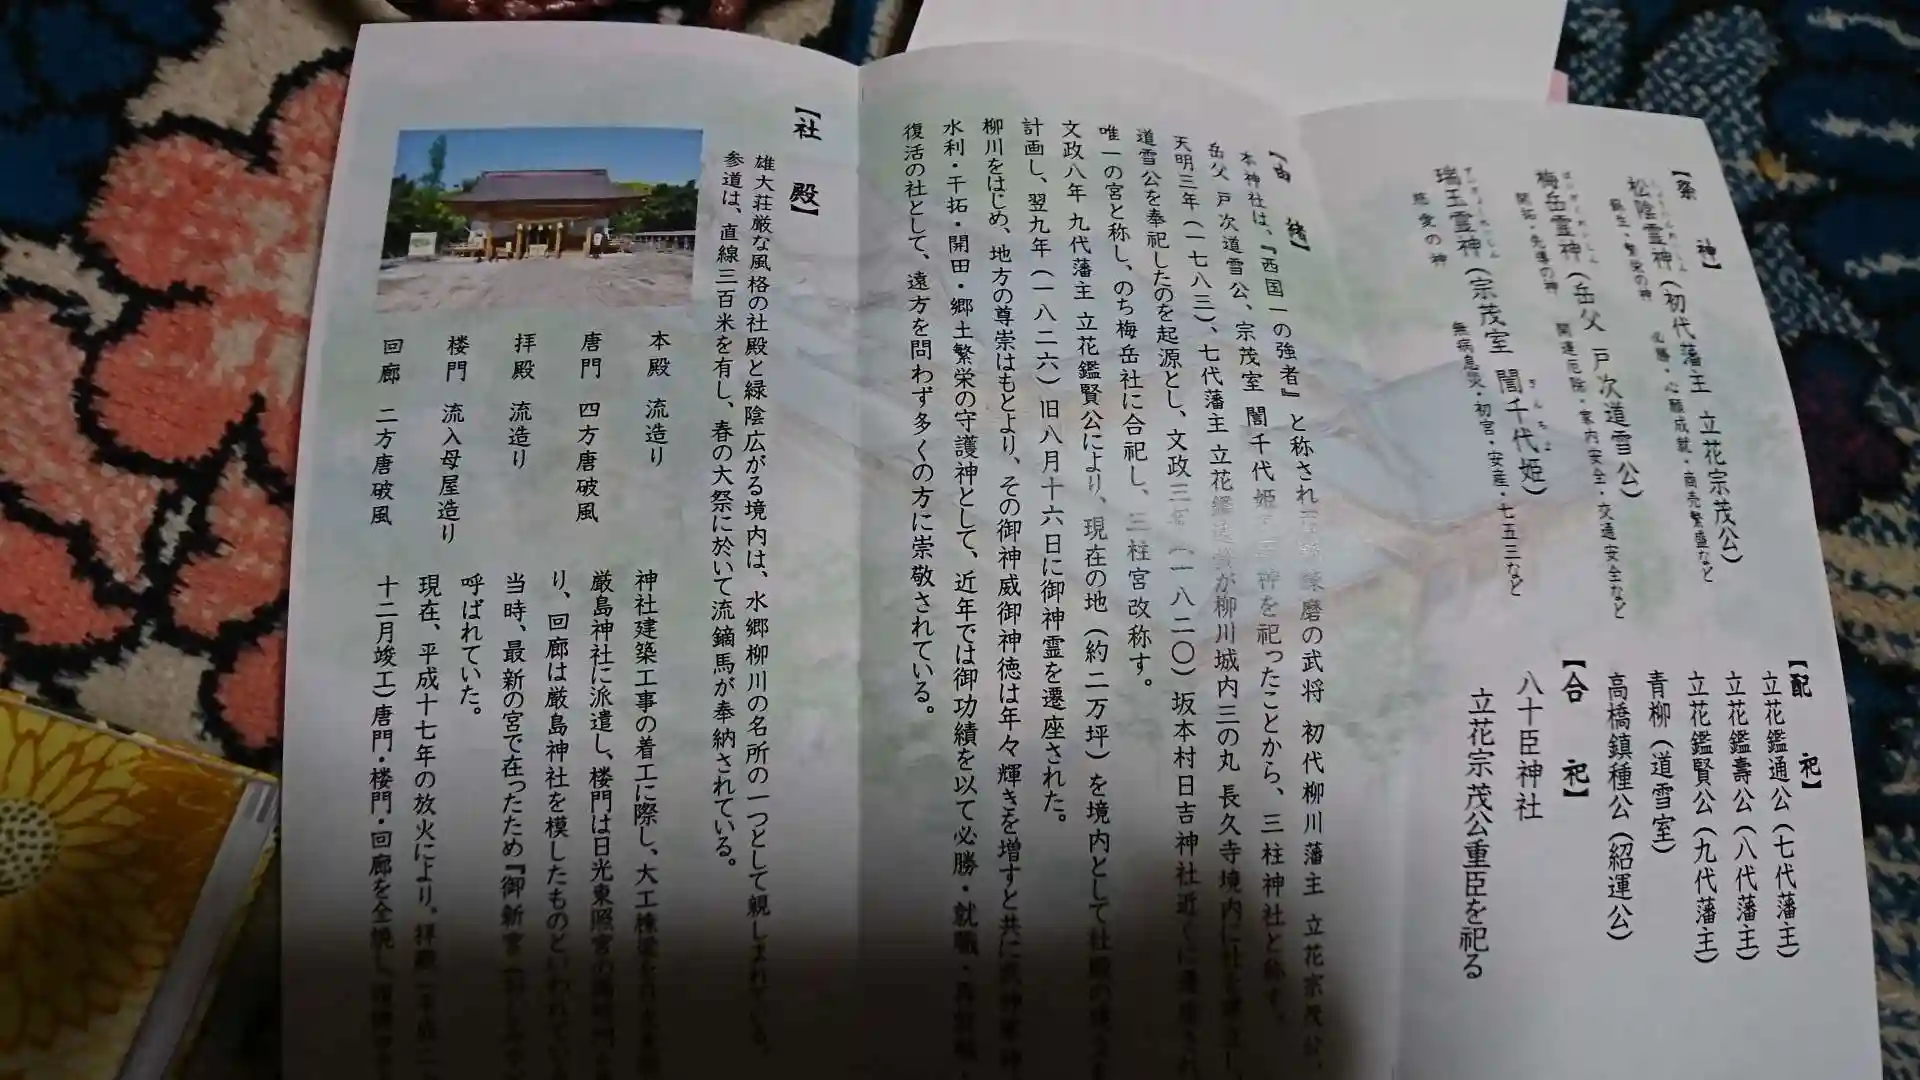 【祭神】
松陰霊神(初代藩主 立花宗茂公)
蘇生・繁栄の神 必勝・心願成就・商売繁盛など
梅岳霊神(岳父 戸次道雪公)
開拓・先導の神 開運厄除・家内安全・交通安全など
瑞玉霊神(宗茂室 誾千代姫)
慈愛の神 無病息災・初宮・安産・七五三など
【配祀】
立花鑑通公(七代藩主)
立花鑑壽公(八代藩主)
立花鑑賢公(九代藩主)
青柳(道雪室)
高橋鎮種公(紹運公)
【合祀】
八十臣神社
立花宗茂公重臣を祀る
【由緒】
本神社は、『西国一の強者』と称され 磨の武将 初代柳川藩主 立花宗茂公、
岳父 戸次道雪公、宗茂室 誾千代姫 神を祀ったことから、三柱神社と称す。
天明三年(一七八三)、七代藩主 立花鑑通 が柳川城内三の丸 長久寺境内に
道雪公を奉祀したのを起源とし、文政三年(一八二〇)坂本村日吉神社近くに
唯一の宮と称し、のち梅岳社に合祀し、三柱宮改称す。
文政八年 九代藩主 立花鑑賢公により、現在の地(約二万坪)を境内として社殿の
計画し、翌九年(一八二六)旧八月十六日に御神霊を遷座された。
柳川をはじめ、地方の尊崇はもとより、その御神威御神徳は年々輝きを増すと共に
水利・干拓・開田・郷土繁栄の守護神として、近年では御功績を以て必勝・就職・
復活の社として、遠方を問わず多くの方に崇敬されている。
【社殿】
雄大荘厳な風格の社殿と緑陰広がる境内は、水郷柳川の名所の一つとして親しまれている。
参道は、直線三百米を有し、春の大祭に於いて流鏑馬が奉納されている。
本殿 流造り
唐門 四方唐破風
拝殿 流造り
楼門 流入母屋造り
回廊 二方唐破風
神社建築工事の着工に際し、大工棟梁を
厳島神社に派遣し、楼門は日光東照宮の
り、回廊は厳島神社を模したものといわれてい
当時、最新の宮で在ったため『御新宮
呼ばれていた。
現在、平成十七年の放火により、拝殿
十二月竣工)唐門・楼門・回廊を全焼し